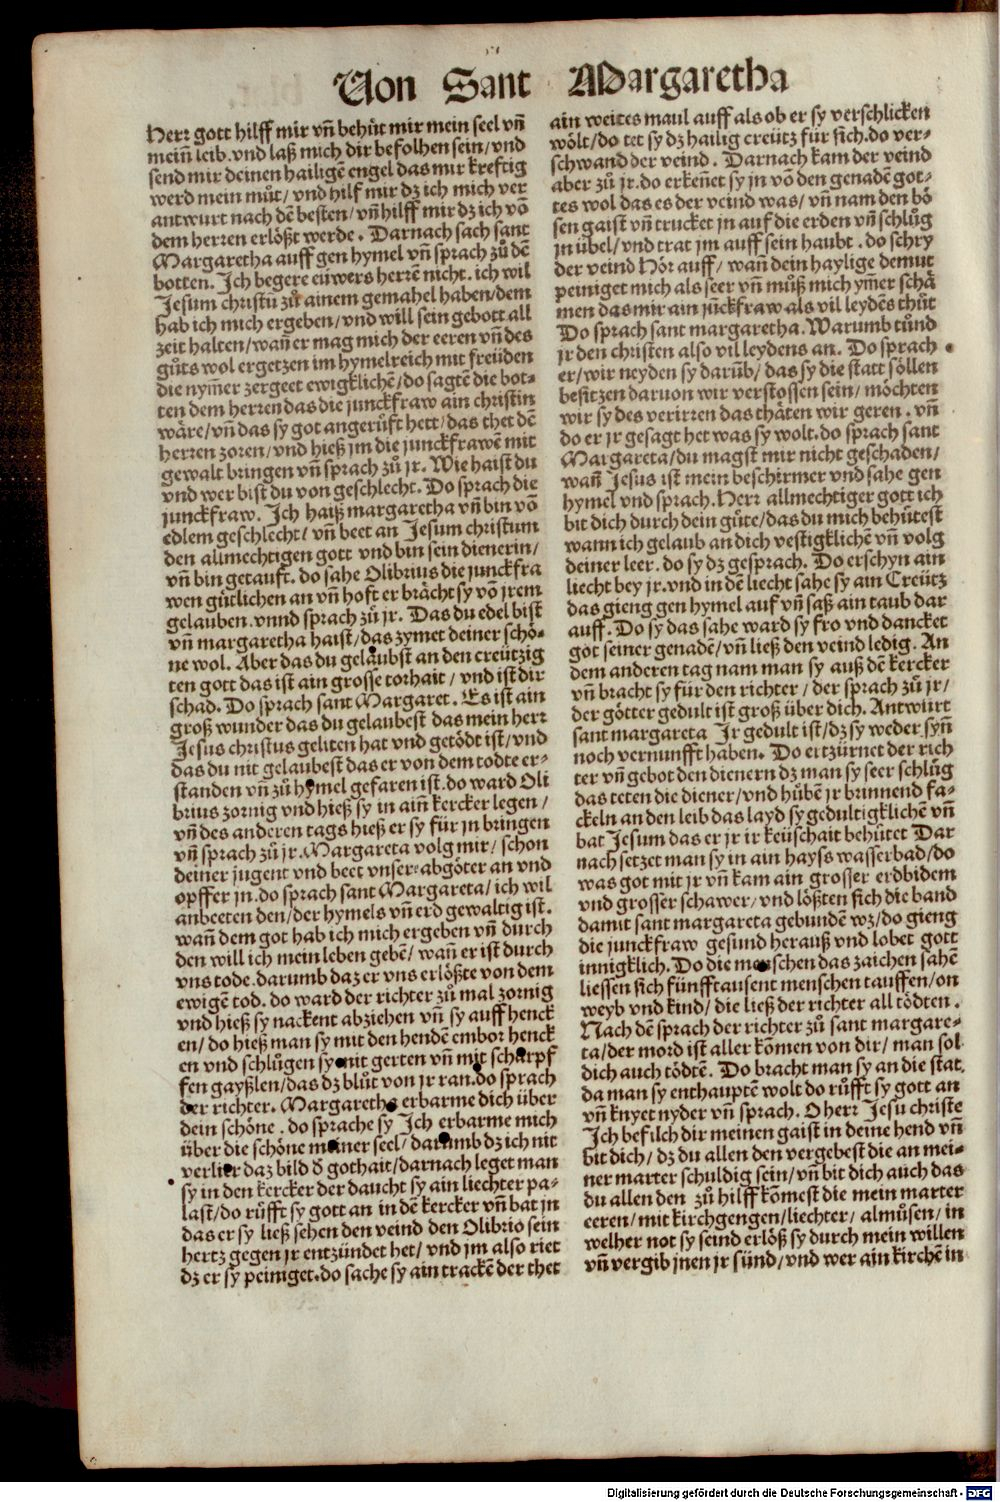 Von Sant Margaretha
Herr gott hilff mir vñ behüt mir mein seel vñ
meiñ leib. vnd laß mich dir befolhen sein/vnd
send mir deinen hailigē engel das mir kreftig
werd mein můt/ vnd hilf mir dz ich mich ver
antwurt nach dē besten/ vñ hilff mir dz ich vō
dem herren erlößt werde. Darnach sach sant
Margaretha auff gen hymel vñ sprach zů dē
botten. Ich begere eüwers herrē nicht. ich wil
Jesum christū zů ainem gemahel haben/dem
hab ich mich ergeben/vnd will sein gebott all
zeit halten/wañ er mag mich der eeren vñ des
gůts wol ergetzen im hymelreich mit freüden
die nym̄er zergeet ewigklichē/do sagtē die bot-
ten dem herren das die junckfraw ain christin
wäre/vñ das sy got angerůfft hett/das thet dē
herren zoren/vnd hieß im die junckfrawē mit
gewalt bringen vñ sprach zů jr. Wie haist du
vnd wer bist du von geschlecht. Do sprach die
junckfraw. Ich haiß margaretha vñ bin vō
edlem geschlecht/ vñ beet an Jesum christum
den allmechtigen gott vnd bin sein dienerin/
vñ bin getauft. do sahe Olibrius die junckfra
wen gütlichen an vñ hoft er brächt sy vō jrem
gelauben. vnnd sprach zů jr. Das du edel bist
vñ margaretha haist/das zymet deiner schö-
ne wol. Aber das du gelaubst an den creützig
ten gott das ist ain grosse torhait/ vnd ist dir
schad. Do sprach sant Margaret. Es ist ain
groß wunder das du gelaubest das mein herr
Jesus christus geliten hat vnd getödt ist/vnd
das du nit gelaubest das er von dem todte er-
standen vñ zů hymel gefaren ist. do ward Oli
brius zornig vnd hieß sy in aiñ kercker legen/
vñ des anderen tags hieß er sy für jn bringen
vñ sprach zů jr. Margareta volg mir/ schon
deiner jugent vnd beet vnser abgöter an vnd
opffer jn. do sprach sant Margareta/ ich wil
anbeeten den/der hymels vñ erd gewaltig ist.
wañ dem got hab ich mich ergeben vñ durch
den will ich mein leben gebē/ wañ er ist durch
vns tode. darumb daz er vns erlößte von dem
ewigē tod. do ward der richter zů mal zornig
vnd hieß sy nackent abziehen vñ sy auff henck
en/ do hieß man sy mit den hendē embor henck
en vnd schlůgen sy mit gerten vñ mit scharpf
fen gayßlen/das dz blůt von jr ran. do sprach
der richter. Margaretha erbarme dich über
dein schöne. do sprache sy Ich erbarme mich
über die schöne meiner seel/ darumb dz ich nit
verlier daz bild d̄ gothait/darnach leget man
sy in den kercker der daucht sy ain liechter pa-
last/do růfft sy gott an in dē kercker vñ bat jn
das er sy ließ sehen den veind den Olibrio sein
hertz gegen jr entzündet het/ vnd jm also riet
dz er sy peiniget. do sache sy ain trackē der thet
ain weites maul auff als ob er sy verschlicken
wölt/do tet sy dz hailig creütz für sich. do ver-
schwand der veind. Darnach kam der veind
aber zů jr. do erkeñet sy jn vō den genadē got-
tes wol das es der veind was/ vñ nam den bö
sen gaist vñ trucket jn auf die erden vñ schlůg
jn übel/vnd trat jm auff sein haubt. do schry
der veind Hör auff/ wañ dein haylige demut
peiniget mich als seer vñ můß mich ym̄er schä
men das mir ain jūckfraw als vil leydēs thůt
Do sprach sant margaretha. Warumb tůnd
jr den christen also vil leydens an. Do sprach
er/wir neyden sy darüb/ das sy die statt söllen
besitzen daruon wir verstossen sein/ möchten
wir sy des verirren das thäten wir geren. vñ
do er jr gesagt het was sy wolt. do sprach sant
Margareta/du magst mir nicht geschaden/
wañ Jesus ist mein beschirmer vnd sahe gen
hymel vnd sprach. Herr allmechtiger gott ich
bit dich durch dein güte/das du mich behütest
wann ich gelaub an dich vestigklichē vñ volg
deiner leer. do sy dz gesprach. Do erschyn ain
liecht bey jr. vnd in dē liecht sahe sy ain Creütz
das gieng gen hymel auf vñ saß ain taub dar
auff. Do sy das sahe ward sy fro vnd dancket
got seiner genadē/vñ ließ den veind ledig. An
dem anderen tag nam man sy auß dē kercker
vñ bracht sy für den richter/ der sprach zů jr/
der götter gedult ist groß über dich. Antwürt
sant margareta Jr gedult ist/dz sy weder syñ
noch vernunfft haben. Do ertzürnet der rich
ter vñ gebot den dienern dz man sy seer schlůg
das teten die diener/vnd hüben jr brinnend fa-
ckeln an den leib das layd sy gedultigklichē vñ
bat Jesum das er jr ir keüschait behütet Dar
nach setzet man sy in ain hayß wasserbad/do
was got mit jr vñ kam ain grosser erdbidem
vnd grosser schawer/vnd lößten sich die band
damit sant margareta gebundē wz/do gieng
die junckfraw gesund herauß vnd lobet gott
innigklich. Do die menschen das zaichen sahē
liessen sich fünfftausent menschen tauffen/on
weyb vnd kind/ die ließ der richter all tödten.
Nach dē sprach der richter zů sant margare-
ta/der mord ist aller kōmen von dir/ man sol
dich auch tödtē. Do bracht man sy an die stat,
da man sy enthauptē wolt do růfft sy gott an
vñ knyet nyder vñ sprach. O herr Jesu christe
Ich befilch dir meinen gaist in deine hend vñ
bit dich/ dz du allen den vergebest die an mei-
ner marter schuldig sein/vñ bit dich auch das
du allen den zů hilff kōmest die mein marter
eeren/mit kirchgengen/liechter/ almůsen/ in
welher not sy seind erlöß sy durch mein willen
vñ vergib jnen jr sünd/vnd wer ain kirchē in
Digitalisierung gefördert durch die Deutsche Forschungsgemeinschaft - DFG